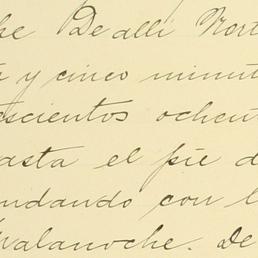 he De alli Nort
y cinco minut
scientos ochen
asta el pie d
ndando con l
valanoche. De